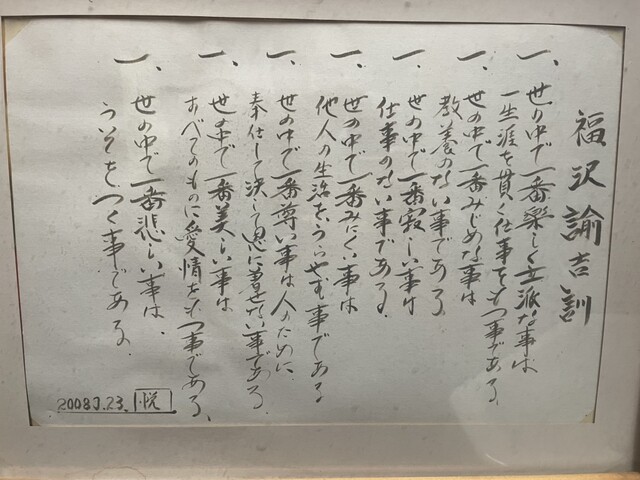 福沢諭吉訓
一、世の中で一番楽しく立派な事は
一生涯を貫く仕事をもつ事である。
一、世の中で一番みじめな事は
教養のない事である
一、世の中で一番寂しい事は
仕事のない事である。
一、世の中で一番みにくい事は
他人の生活をうらやむ事である
一、世の中で一番尊い事は人のために
奉仕して決して恩に着せない事である。
一、世の中で一番美しい事は
すべてのものに愛情をもつ事である。
一、世の中で一番悲しい事は、
うそをつく事である。
2008.3.23. 悦